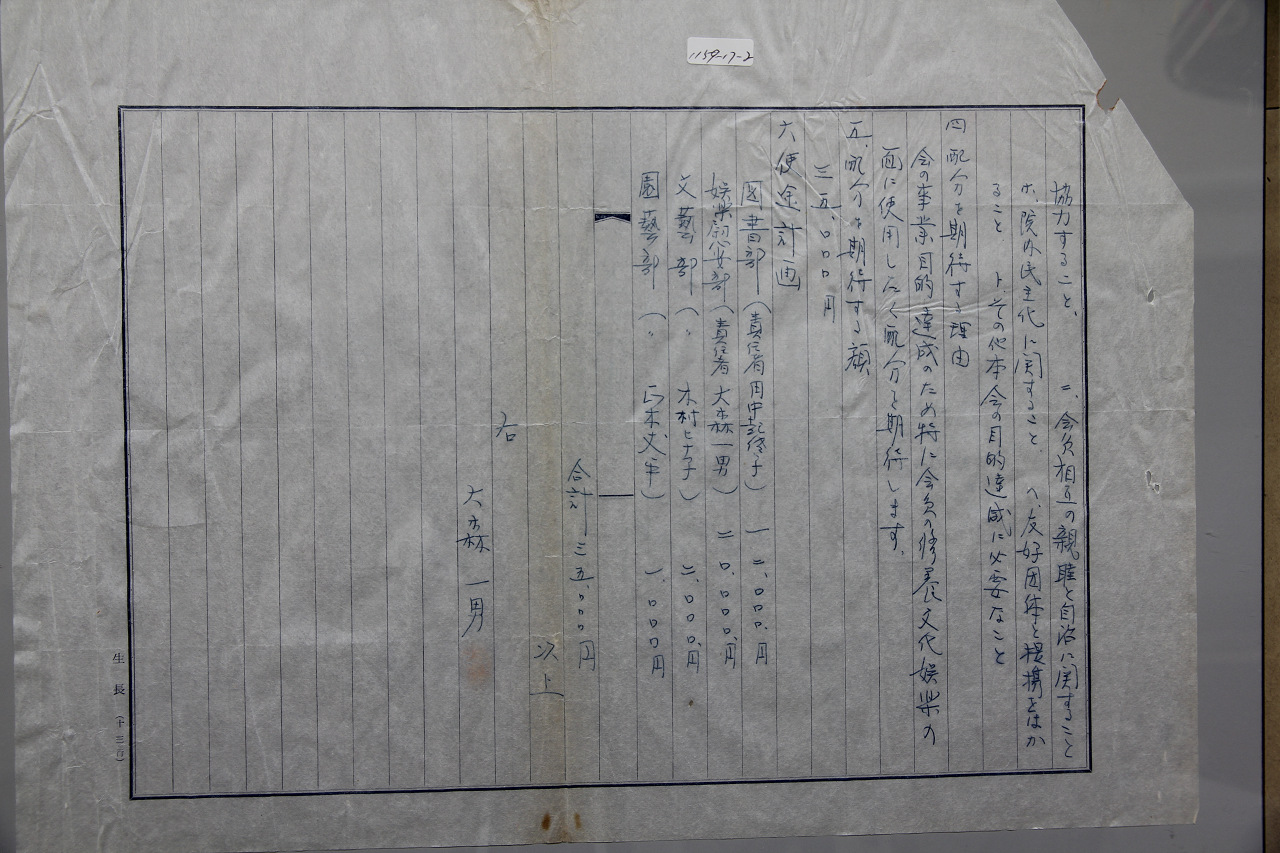 1159-17-2
協力すること、 ニ、会員相互の親睦と自治に関すること
ホ、院内民主化に関すること、 ヘ、友好団体と提携をはか
ること ト、その他本会の目的達成に必要なこと
四 配分を期待する理由
会の事業目的達成のため特に会員の修養文化娯楽の
面に使用したく配分を期待します。
五、配分を期待する額
三五、〇〇〇円
六 使途計画
図書部(責任者 田中 子) 一二、〇〇〇、円
娯楽慰安部(責任者 大森一男) 二〇、〇〇〇、円
文藝部(〃 木村ヒナ子) 二、〇〇〇、円
園藝部(〃 正木 ) 一、〇〇〇円
合計 三五、〇〇〇円
以上
右
大森一男
生長(十三行)